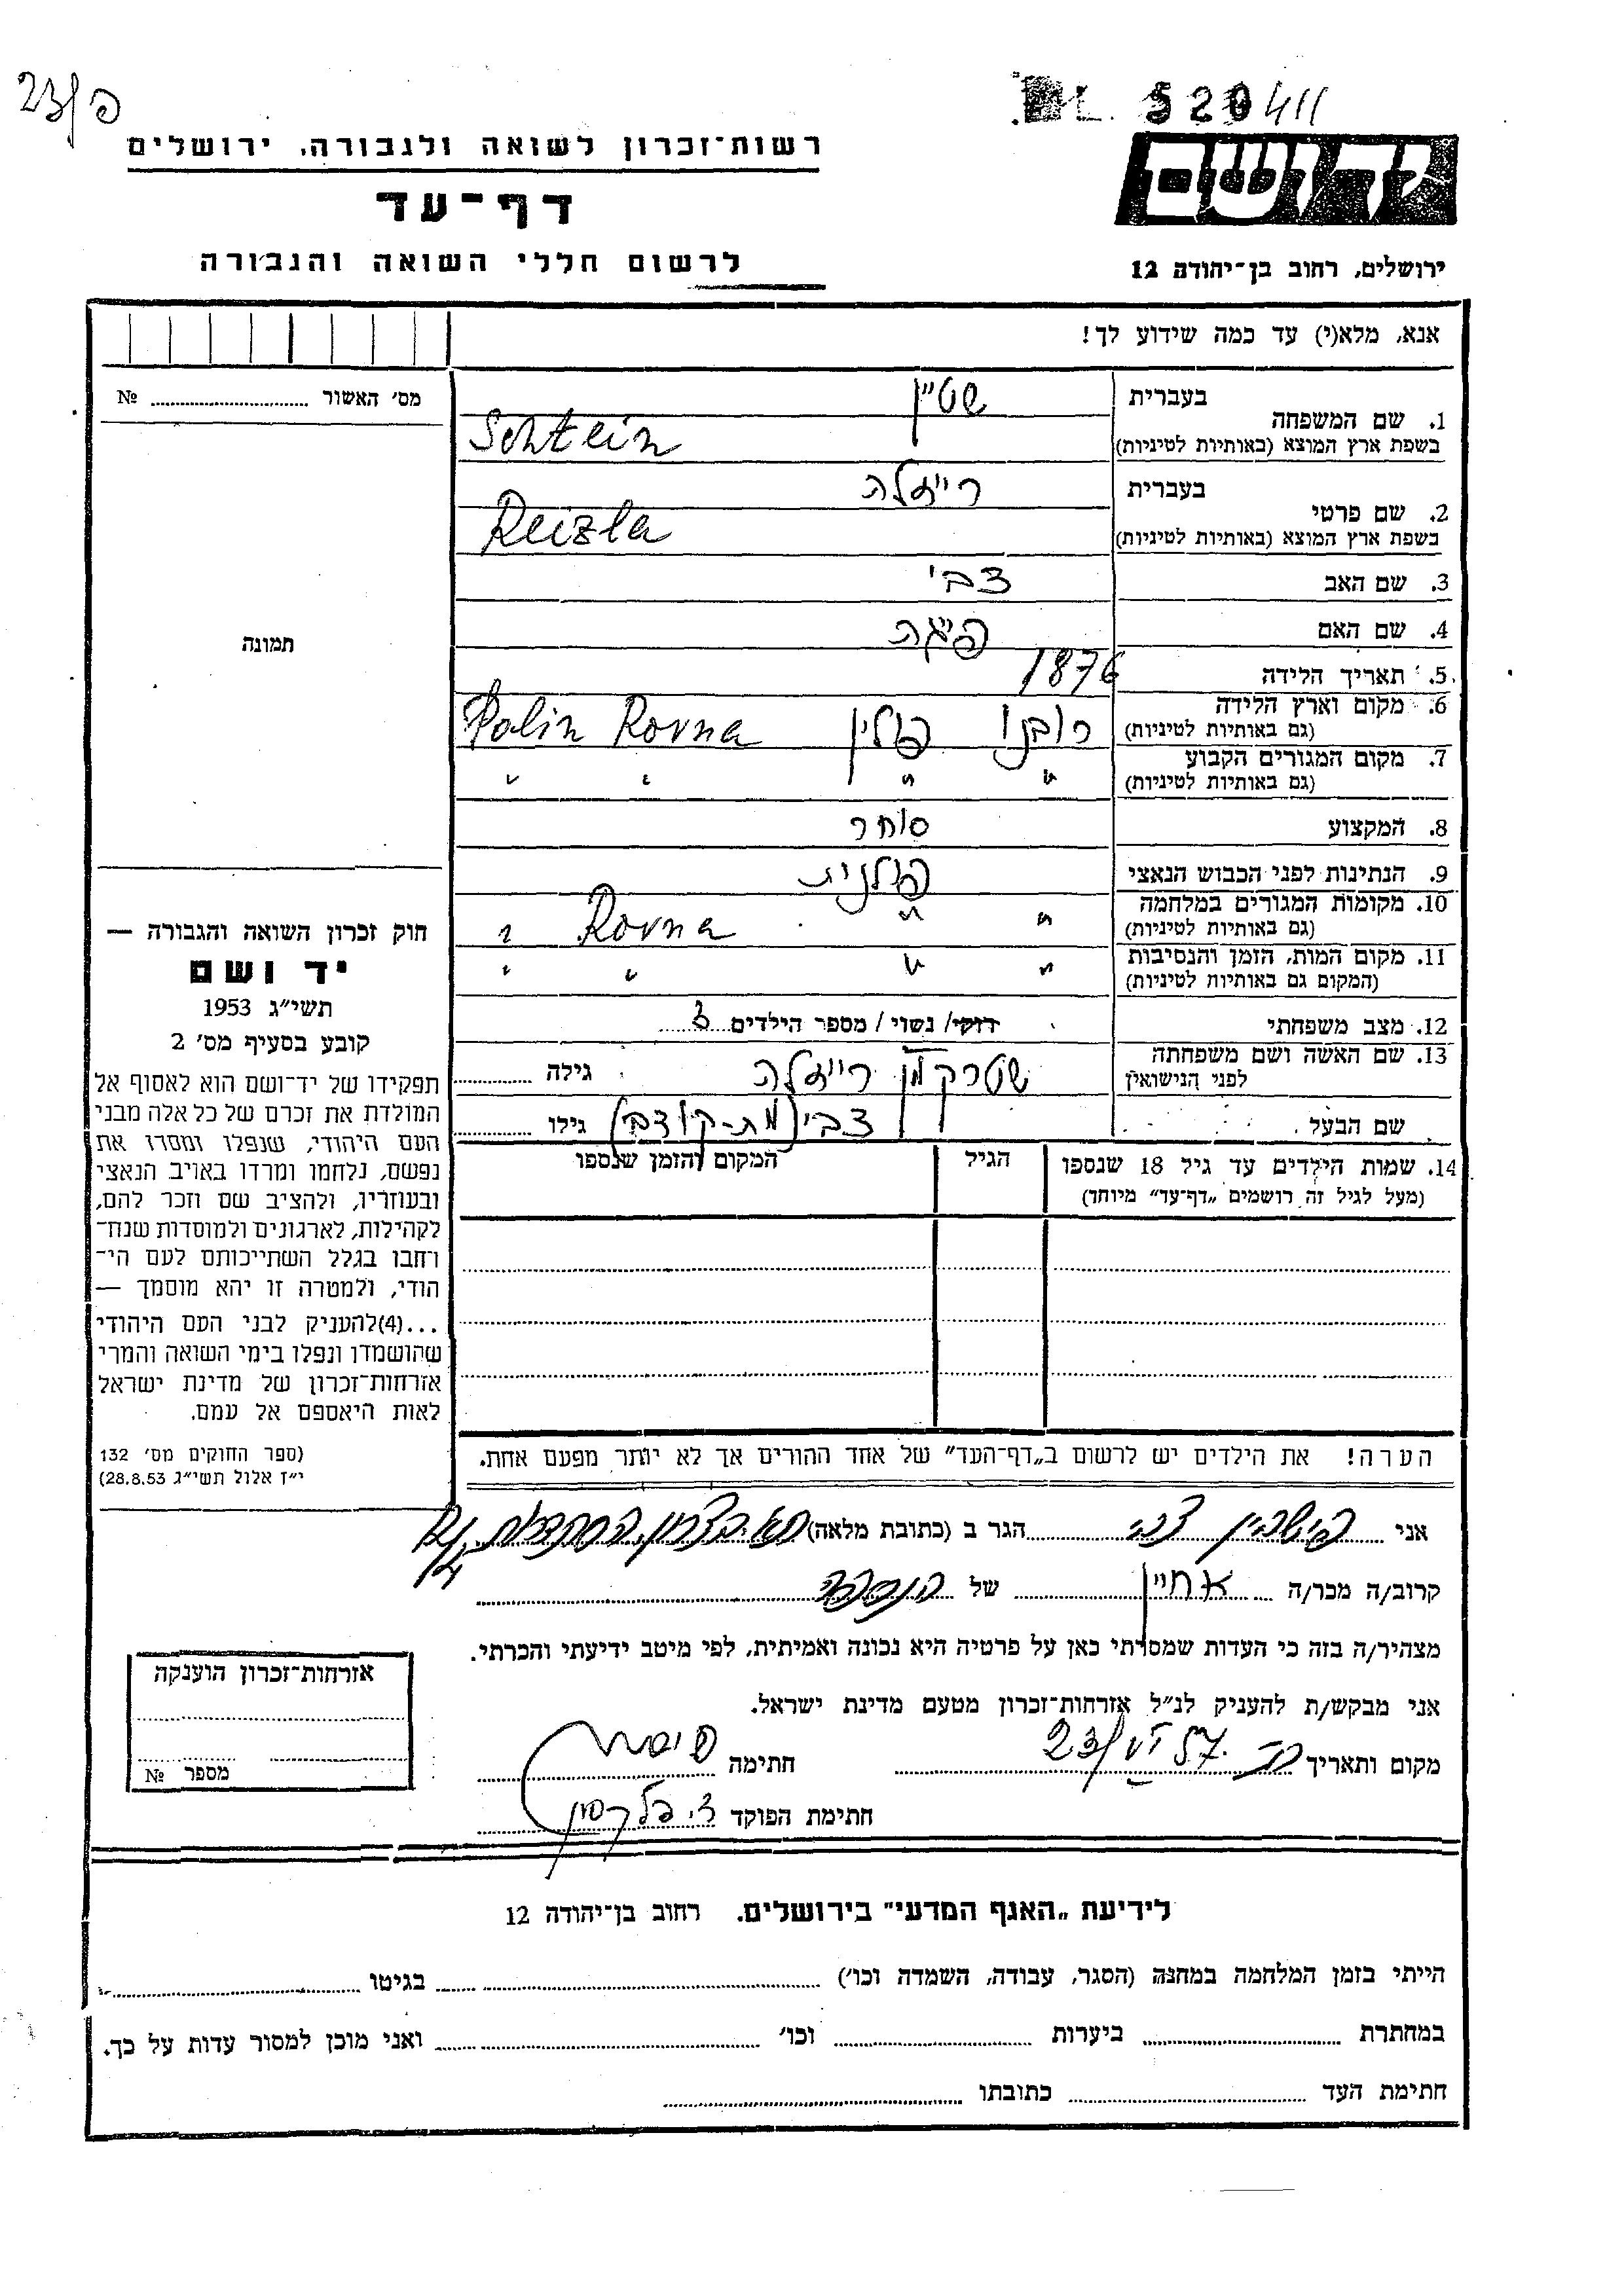 23/פ
520411
רשות־זכרון לשואה ולגבורה, ירושלים
דף־עד
לרשום חללי השואה והגבורה
ידושם
ירושלים, רחוב בן־יהודה 12
אנא, מלא(י) עד כמה שידוע לך!
מס׳ האשור № 
תמונה
בעברית שטיין
1. שם המשפחה
בשפת ארץ המוצא (באותיות לטיניות) Schtein
בעברית רייזלה
2. שם פרטי
בשפת ארץ המוצא (באותיות לטיניות) Reizla
3. שם האב צבי
4. שם האם פיגה
5. תאריך הלידה 1876
6. מקום וארץ הלידה רובנו פולין Polin Rovna
(גם באותיות לטיניות)
7. מקום המגורים הקבוע " " " "
(גם באותיות לטיניות)
8. המקצוע סוחר
9. הנתינות לפני הכבוש הנאצי פולנית
10. מקומות המגורים במלחמה " " Rovna "
(גם באותיות לטיניות)
11. מקום המות, הזמן והנסיבות " " " "
(המקום גם באותיות לטיניות)
12. מצב משפחתי רווק/ נשוי / מספר הילדים 3
13. שם האשה ושם משפחתה שטרקמן רייזלה גילה
לפני הנישואין
שם הבעל צבי (מת-קודם) גילו
14. שמות הילדים עד גיל 18 שנספו הגיל המקום והזמן שנספו
(מעל לגיל זה רושמים „דף־עד״ מיוחד)
חוק זכרון השואה והגבורה —
יד ושם
תשי״ג 1953
קובע בסעיף מס׳ 2
תפקידו של יד־ושם הוא לאסוף אל
המולדת את זכרם של כל אלה מבני
העם היהודי, שנפלו ומסרו את
נפשם, נלחמו ומרדו באויב הנאצי
ובעוזריו, ולהציב שם וזכר להם,
לקהילות, לארגונים ולמוסדות שנח־
רחבו בגלל השתייכותם לעם הי־
הודי, ולמטרה זו יהא מוסמך —
...(4)להעניק לבני העם היהודי
שהושמדו ונפלו בימי השואה והמרי
אזרחות־זכרון של מדינת ישראל
לאות היאספם אל עמם.
(ספר החוקים מס׳ 132
י״ז אלול תשי״ג 28.8.53)
הערה! את הילדים יש לרשום ב„דף־העד״ של אחד ההורים אך לא יותר מפעם אחת.
אני צבי הגר ב (כתובת מלאה)
קרוב/ה מכר/ה אחיין של הנספה
מצהיר/ה בזה כי העדות שמסרתי כאן על פרטיה היא נכונה ואמיתית, לפי מיטב ידיעתי והכרתי.
אני מבקש/ת להעניק לנ״ל אזרחות־זכרון מטעם מדינת ישראל.
מקום ותאריך 23/VI 57 חתימה
חתימת הפוקד
אזרחות־זכרון הוענקה
מספר №
לידיעת „האגף המדעי״ בירושלים. רחוב בן־יהודה 12
הייתי בזמן המלחמה במחנה (הסגר, עבודה, השמדה וכו׳) בגיטו
במחתרת ביערות וכו׳ ואני מוכן למסור עדות על כך.
חתימת העד כתובתו